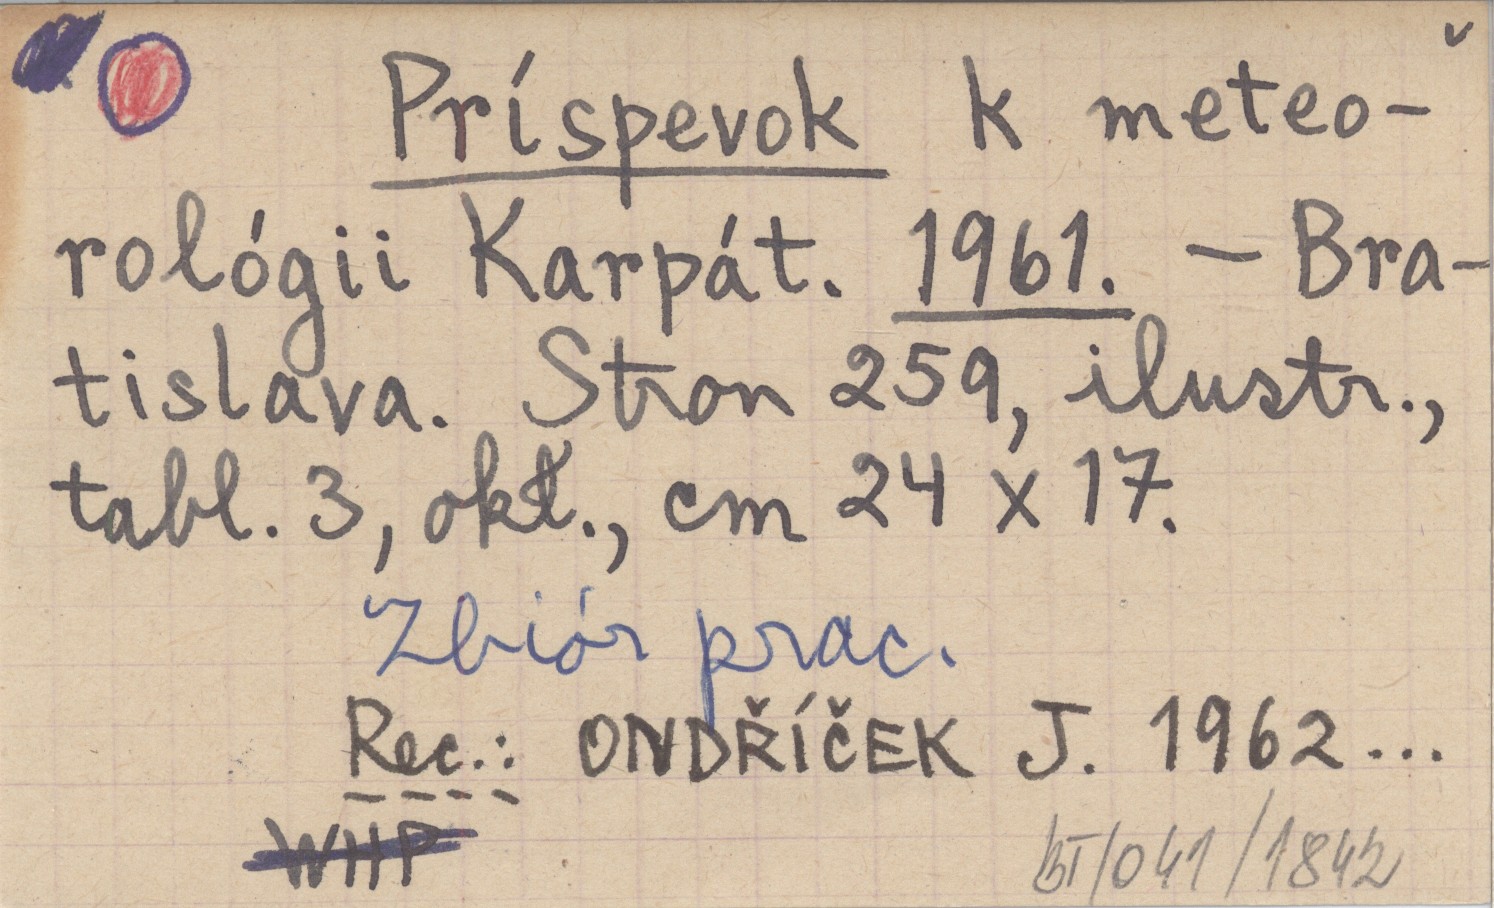 Príspevok k meteo-
rológii Karpát. 1961. – Bra-
tislava. Stron 259, ilustr.,
tabl. 3, okł., cm 24 x 17.
Zbiór prac.
Rec.: ONDŘÍČEK J. 1962...
WHP
/041/1842